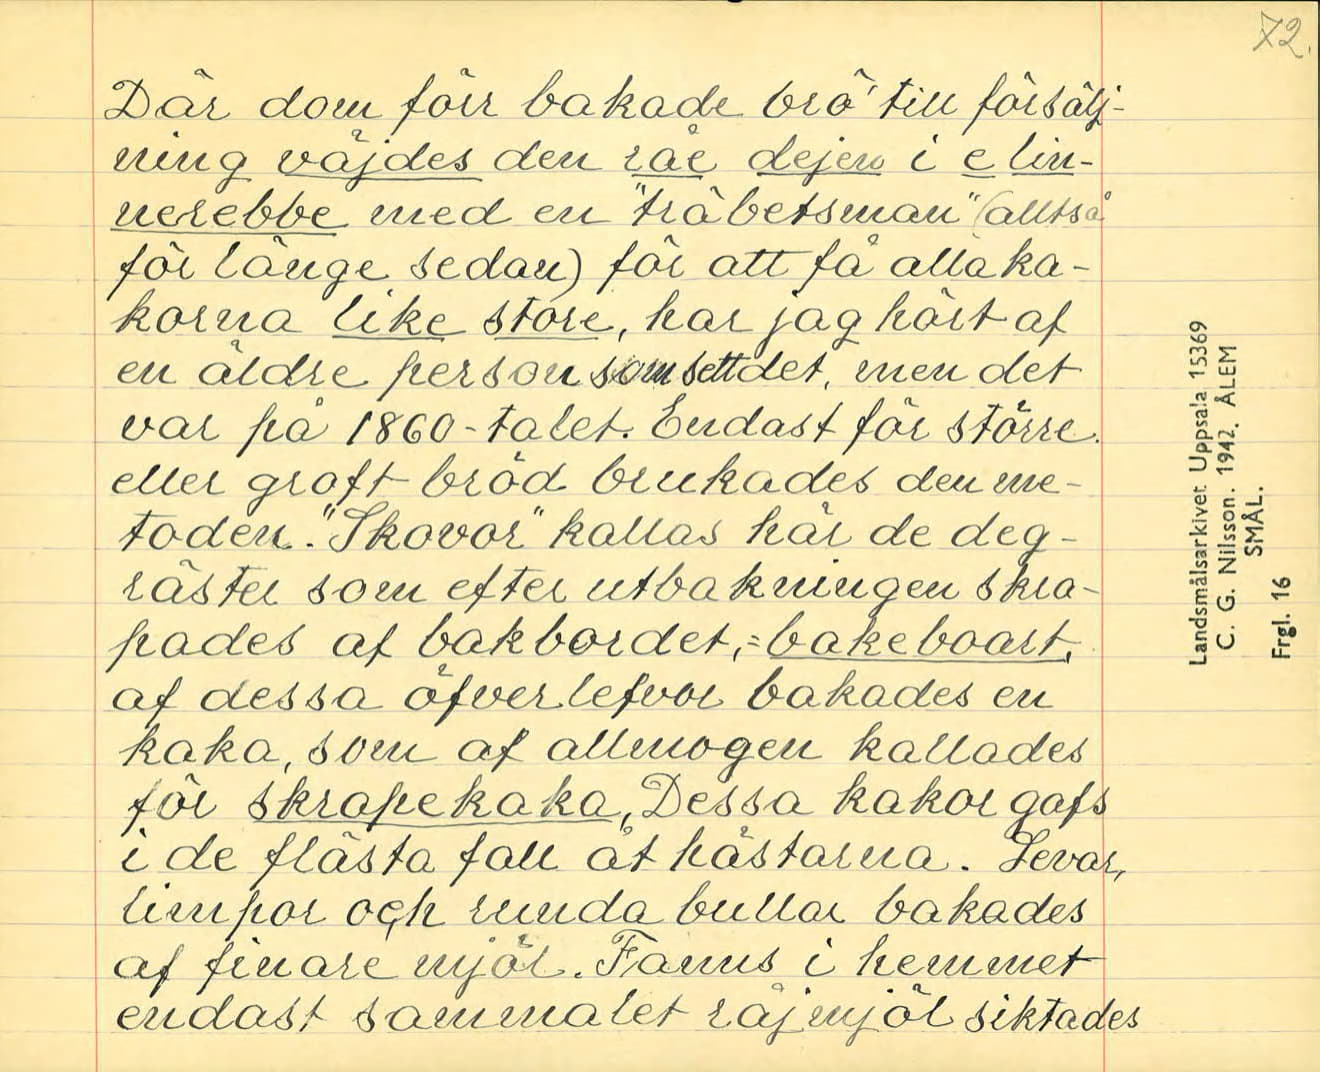 72.
Där dom förr bakade brö' till försälj-
ning väjdes den råe dejen i e lin-
nerebbe med en "träbetsman" (alltså
för länge sedan) för att få alla ka-
korna like store, har jag hört af
en äldre person som sett det, men det
var på 1860-talet. Endast för större
eller groft bröd brukades den me-
toden. "Skovor" kallas här de deg-
räster som efter utbakningen skra-
pades af bakbordet, = bakeboart,
af dessa öfverlefvor bakades en
kaka, som af allmogen kallades
för skrapekaka, Dessa kakor gafs
i de flästa fall åt hästarna. Levar,
limpor och runda bullar bakades
af finare mjöl. Fanns i hemmet
endast sammalet råjmjöl siktades
Landsmålsarkivet Uppsala 15369
C. G. Nilsson. 1942. ÅLEM
SMÅL.
Frgl. 16